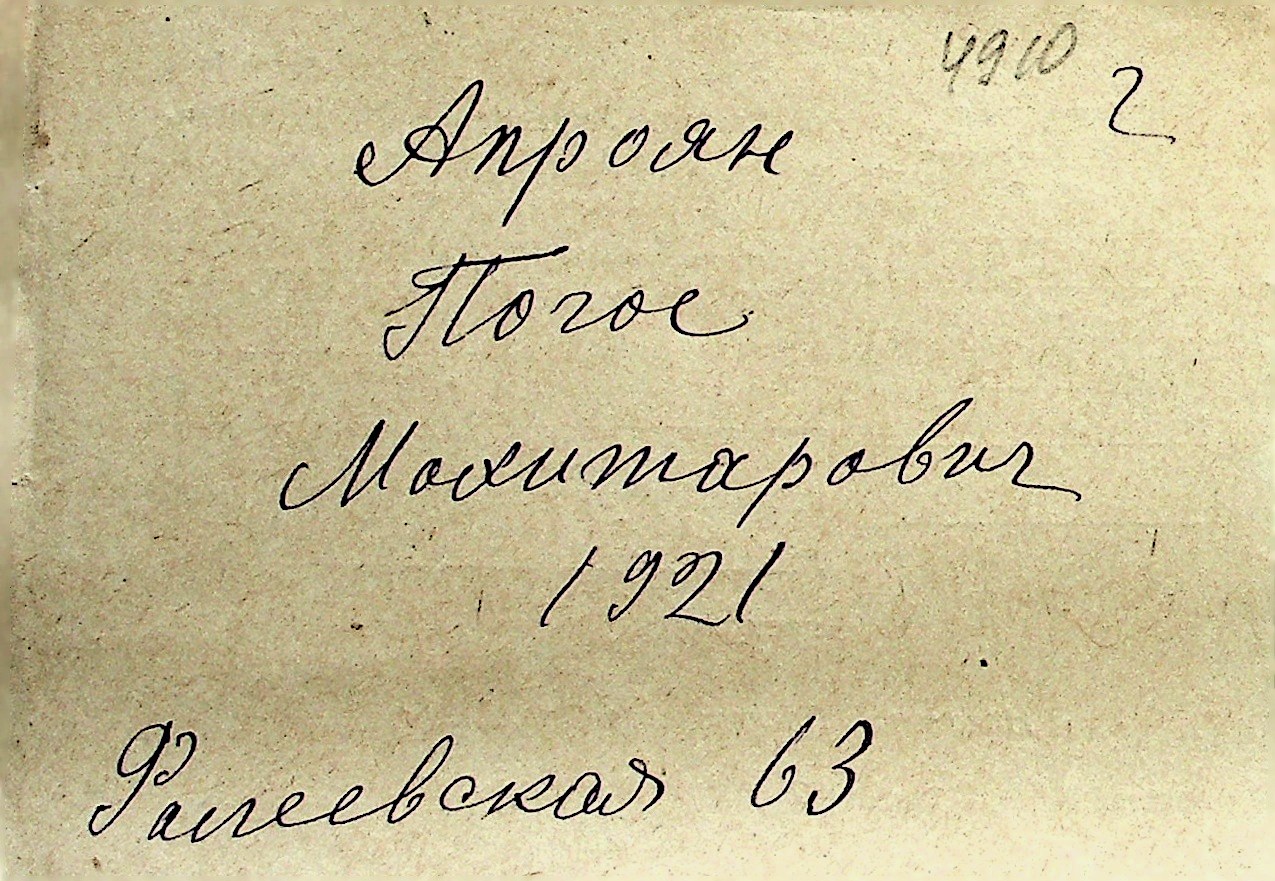 4910 2
Апроян
Погос
Мохитарович
1921
Фалеевская 63